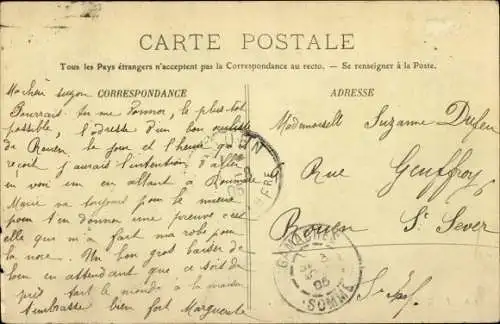 CARTE POSTALE
Tous les Pays étrangers n'acceptent pas la Correspondance au recto. — Se renseigner à la Poste.
CORRESPONDANCE
ADRESSE
Ma chère Suzon
Pourrais tu me donner, le plus tôt
possible, l'adresse d'un bon oculiste
de Rouen le jour et l'heure qu'il
reçoit j'aurais l'intention d'aller
en voir un en allant à
Marie va toujours pour le mieux
pour t'en donner une preuve c'est
elle qui m'a fait ma robe pour
la noce. Un bon gros baiser de
loin en attendant que ce soit de
près tout le monde à la maison
t'embrasse bien fort Marguerite
Mademoiselle Suzanne
Rue Geuffroy
Rouen St Sever
S. Inf.
05
SOMME
05